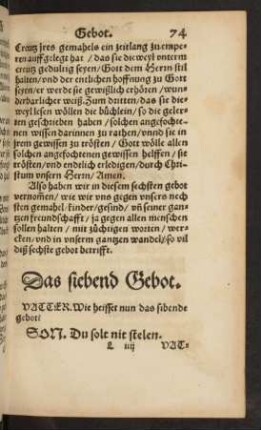 Gebot. 74
Creütz jres gemahels ein zeitlang zu empe-
ren auffgelegt hat / das sie dieweyl vnterm
creütz gedultig seyen / Gott dem Herrn stil
halten / vnd der entlichen hoffnung zu Gott
seyen / er werde sie gewißlich erhören / wun-
derbarlicher weiß. Zum dritten / das sie die-
weyl lesen wöllen die büchlein / so die geler-
ten geschrieben haben / solchen angefochte-
nen wissen darinnen zu rathen / vnnd sie in
jrem gewissen zu trösten / Gott wölle allen
solchen angefochtenen gewissen helffen / sie
trösten / vnd endtlich erledigen / durch Chri-
stum vnsern Herrn / Amen.
Also haben wir in diesem sechsten gebot
vernomen / wie wir vns gegen vnsern nech
sten gemahel / kinder / gesind / vñ seiner gan-
tzen freundschafft / ja gegen allen menschen
sollen halten / mit züchtigen worten / wer-
cken / vnd in vnserm gantzen wandel / so vil
diß sechste gebot betrifft.
Das siebend Gebot.
VATTER. Wie heisset nun das sibende
gebot?
SON. Du solt nit stelen.
L iiij VAT-